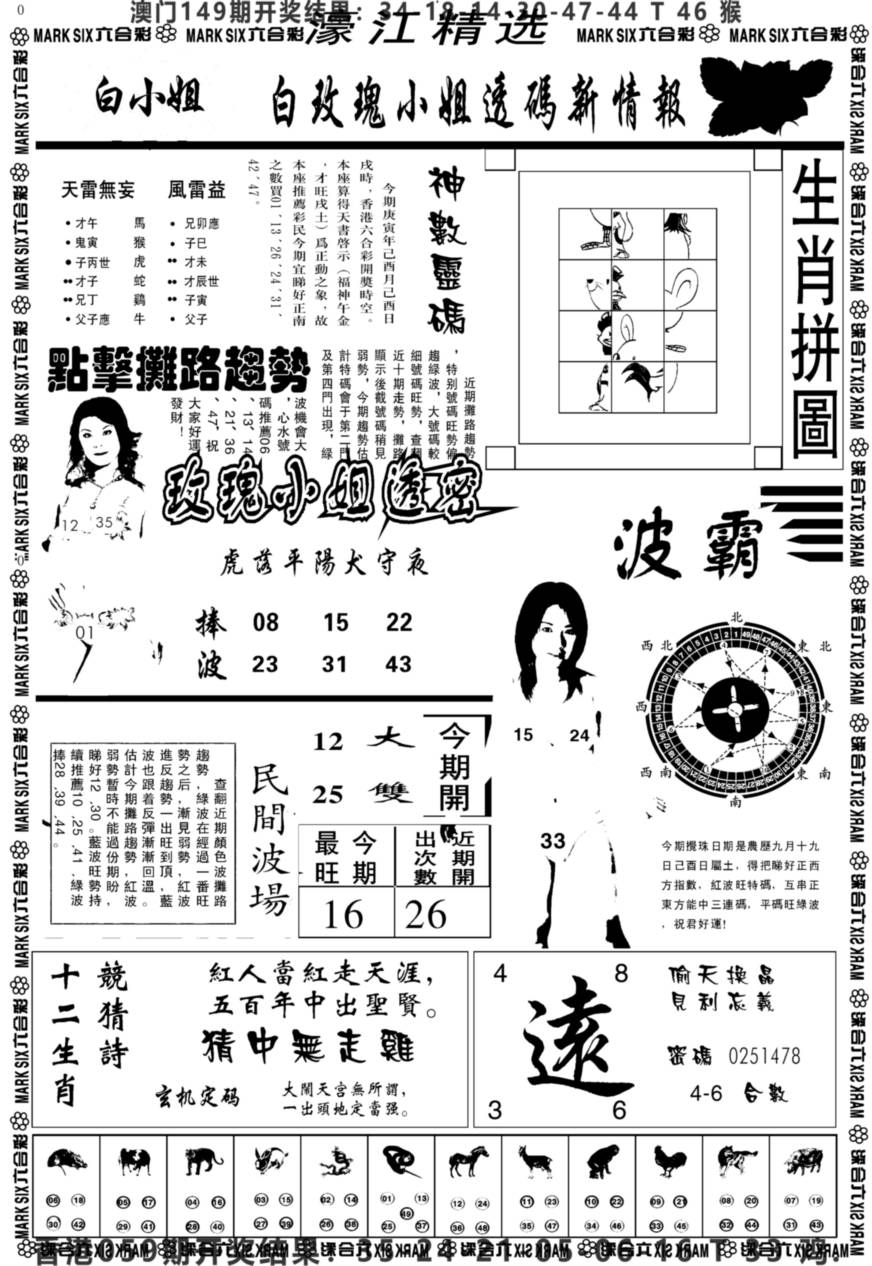 0
澳门149期开奖结果: 34-19-14-30-47-44 T 46 猴
MARK SIX六合彩 MARK SIX六合彩 濠江精选 MARK SIX六合彩 MARK SIX六合彩
白小姐 白玫瑰小姐透碼新情報
天雷無妄 風雷益
•才午 馬 •兄卯應
•鬼寅 猴 •子巳
●子丙世 虎 ••才未
••才子 蛇 ••才辰世
••兄丁 鷄 ••子寅
•父子應 牛 •父子
神數靈碼
今期庚寅年己酉月己酉日
戌時，香港六合彩開獎時空。
本座算得天書啓示（福神午金
，才旺戌土）爲正動之象，故
本座推薦彩民今期宜睇好正南
之數買01´13´26´24´31´
42´47。
生肖拼圖
點擊攤路趨勢
近期攤路趨勢
，特别號碼旺勢偏
趨綠波，大號碼較
細號碼旺勢，查翻
近十期走勢，攤路
顯示後截號碼稍見
弱勢，今期趨勢估
計特碼會于第二門
及第四門出現，綠
波機會大
，心水號
碼推薦06
´13´14
´21´36
´47´祝
大家好運
發財！
12 35
01
玫瑰小姐透密
虎落平陽犬守夜
捧 08 15 22
波 23 31 43
波霸
15 24
33
北
西北 東北
西 東
西南 東南
南
今期攪珠日期是農歷九月十九
日己酉日屬土，得把睇好正西
方指數，紅波旺特碼，互串正
東方能中三連碼，平碼旺綠波
，祝君好運!
查翻近期顏色攤路
趨勢，綠波在經過一波
勢之后，漸見弱，紅番旺
進反趨勢一出旺到勢，藍波
波也跟着反彈漸回頂，
估計今期攤路趨勢紅溫。
弱勢暫時不能過份勢盼波
睇好12，30。藍波旺期，
續推薦10，25，41，綠波持
捧28，39，44。
民間波場
12 大
25 雙
今期開
最旺 今期
出次數 近期開
16 26
十二生肖
競猜詩
紅人當紅走天涯，
五百年中出聖賢。
猜中無走雞
玄机定码
大鬧天宮無所謂，
一出頭地定當强。
4 8
遠
3 6
偷天換晶
見利忘義
密碼 0251478
4-6 合數
06 18 30 42
05 17 29 41
04 16 28 40
03 15 27 39
02 14 26 38
01 13 49 25 37
12 24 36 48
11 23 35 47
10 22 34 46
09 21 33 45
08 20 32 44
07 19 31 43
香港059期开奖结果: 35-24-21-05-06-16 T 33 鸡.